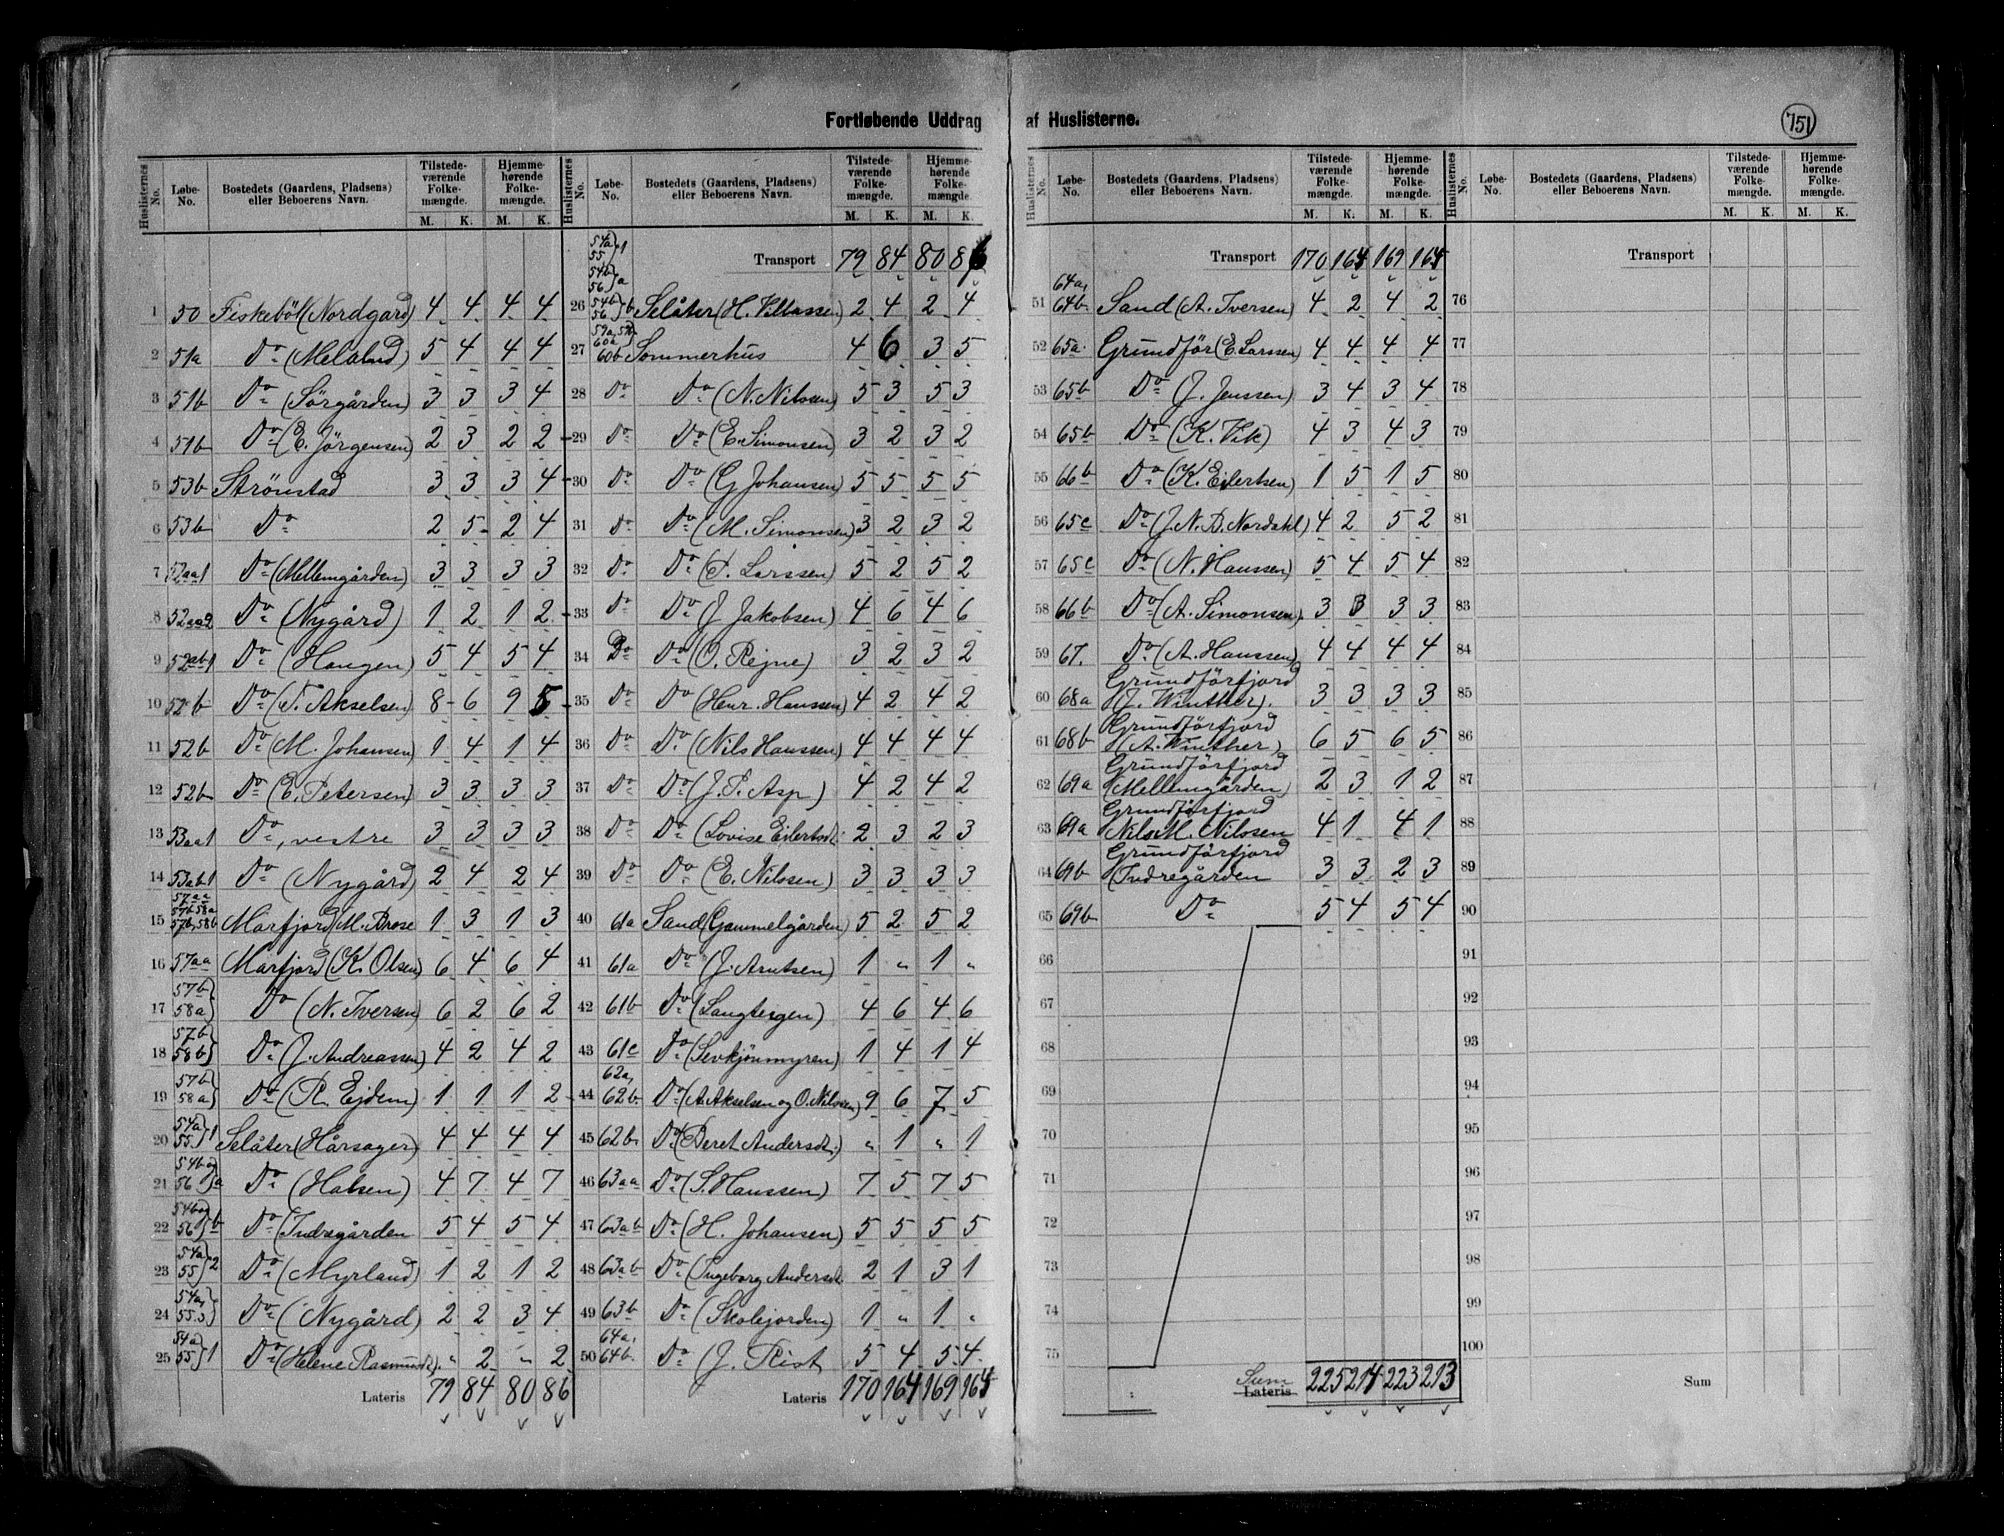 Fortløbende Uddrag af Huslisterne.
751
Huslisternes No. Løbe-No. Bostedets (Gaardens, Pladsens) eller Beboerens Navn. Tilstedeværende Folkemængde. M. K. Hjemmehørende Folkemængde. M. K.
1 50 Fiskeböl (Nordgård) 4 4 4 4
2 51a Do (Meland) 5 4 4 4
3 51b Do (Sörgården) 3 3 3 4
4 51b Do (E. Jörgensen) 2 3 2 2
5 53b Strönstad 3 3 3 4
6 53b Do 2 5 2 4
7 52aa1 Do (Mellemgården) 3 3 3 3
8 52aa2 Do (Nygård) 1 2 1 2
9 52ab1 Do (Haugen) 5 4 5 4
10 52b Do (T. Akselsen) 8 6 9 5
11 52b Do (M. Johansen) 1 4 1 4
12 52b Do (E. Petersen) 3 3 3 3
13 53aa1 Do, vestre 3 3 3 3
14 53ab1 Do (Nygård) 2 4 2 4
15 57aa 57b 58a 57b, 58b Morfjord (M. Brose 1 3 1 3
16 57aa Mårfjord (K. Olsen) 6 4 6 4
17 57b 58a Do (N. Iversen) 6 2 6 2
18 57b 58b Do (J. Andreassen) 4 2 4 2
19 57b 58a Do (R. Ejdem) 1 1 1 2
20 54a 55 1 Selåter (Hårsager) 4 4 4 4
21 54b og 56 a Do (Halsen) 4 7 4 7
22 54b og 56 b Do (Indregården 5 4 5 4
23 54a 55 2 Do (Myrland) 1 2 1 2
24 54a, 55.3 Do (Nygård) 2 2 3 4
25 54a 55 1 Do (Helene Rasmusd.) " 2 " 2
Lateris 79 84 80 86
Huslisternes No. Løbe-No. Bostedets (Gaardens, Pladsens) eller Beboerens Navn. Tilstedeværende Folkemængde. M. K. Hjemmehørende Folkemængde. M. K.
54a 55 1 54b 56 a Transport 79 84 80 86
26 54b 56 b Selåter (H. Villassen) 2 4 2 4
27 60a 60b Sommerhus 4 6 3 5
28 Do Do (N. Nilssen) 5 3 5 3
29 Do Do (E. Simonsen) 3 2 3 2
30 Do Do (G Johansen) 5 5 5 5
31 Do Do (M. Simonsen) 3 2 3 2
32 Do Do (P. Larssen) 5 2 5 2
33 Do Do (J Jakobsen) 4 6 4 6
34 Do Do (O. Rejne) 3 2 3 2
35 Do Do (Henr. Hanssen 4 2 4 2
36 Do Do (Nils Hanssen) 4 4 4 4
37 Do Do (J. P. Asp) 4 2 4 2
38 Do Do (Lovise Eilertsd. 2 3 2 3
39 Do Do (E. Nilssen) 3 3 3 3
40 61a Sand (Gammelgården) 5 2 5 2
41 61a Do (J. Arntsen) 1 " 1 "
42 61b Do (Langtesgen) 4 6 4 6
43 61c Do (Sevkjönmyren) 1 4 1 4
44 62a, 62b Do (A. Akselsen og O. Nilssen) 9 6 7 5
45 62b Do (Beret Andersd.) " 1 " 1
46 63aa Do (S. Hanssen) 7 5 7 5
47 63ab Do (H. Johansen) 5 5 5 5
48 63ab Do (Ingeborg Andersd. 2 1 3 1
49 63b Do (Skolejorden) 1 " 1 "
50 64a, 64b Do (J. Rist 5 4 5 4
Lateris 170 164 169 164
Huslisternes No. Løbe-No. Bostedets (Gaardens, Pladsens) eller Beboerens Navn. Tilstedeværende Folkemængde. M. K. Hjemmehørende Folkemængde. M. K.
Transport 170 164 169 164
51 64a, 64b Sand (A. Iversen) 4 2 4 2
52 65a Grundför (E. Larssen) 4 4 4 4
53 65b Do (J. Jenssen) 3 4 3 4
54 65b Do (K. Vik) 4 3 4 3
55 66b Do (K. Eilertsen) 1 5 1 5
56 65c Do (J. N. B. Nordahl) 4 2 5 2
57 65c Do (N. Hanssen) 5 4 5 4
58 66b Do (A. Simonsen) 3 3 3 3
59 67. Do (A. Hanssen) 4 4 4 4
60 68a Grundförfjord (J. Winther). 3 3 3 3
61 68b Grundförfjord (A. Winther) 6 5 6 5
62 69a Grundförfjord (Mellemgården) 2 3 1 2
63 69a Grundförfjord Nils M. Nilssen 4 1 4 1
64 69b Grundförfjord (Indregården 3 3 2 3
65 69b Do 5 4 5 4
66
67
68
69
70
71
72
73
74
75
Sum Lateris 225 214 223 213
Huslisternes No. Løbe-No. Bostedets (Gaardens, Pladsens) eller Beboerens Navn. Tilstedeværende Folkemængde. M. K. Hjemmehørende Folkemængde. M. K.
Transport
76
77
78
79
80
81
82
83
84
85
86
87
88
89
90
91
92
93
94
95
96
97
98
99
100
Sum